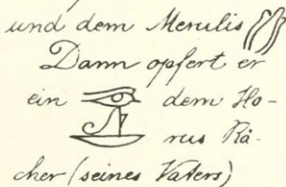 und dem Merulis
Dann opfert er
ein 𓂀 dem Ho-
rus Rä-
cher (seines Vaters)